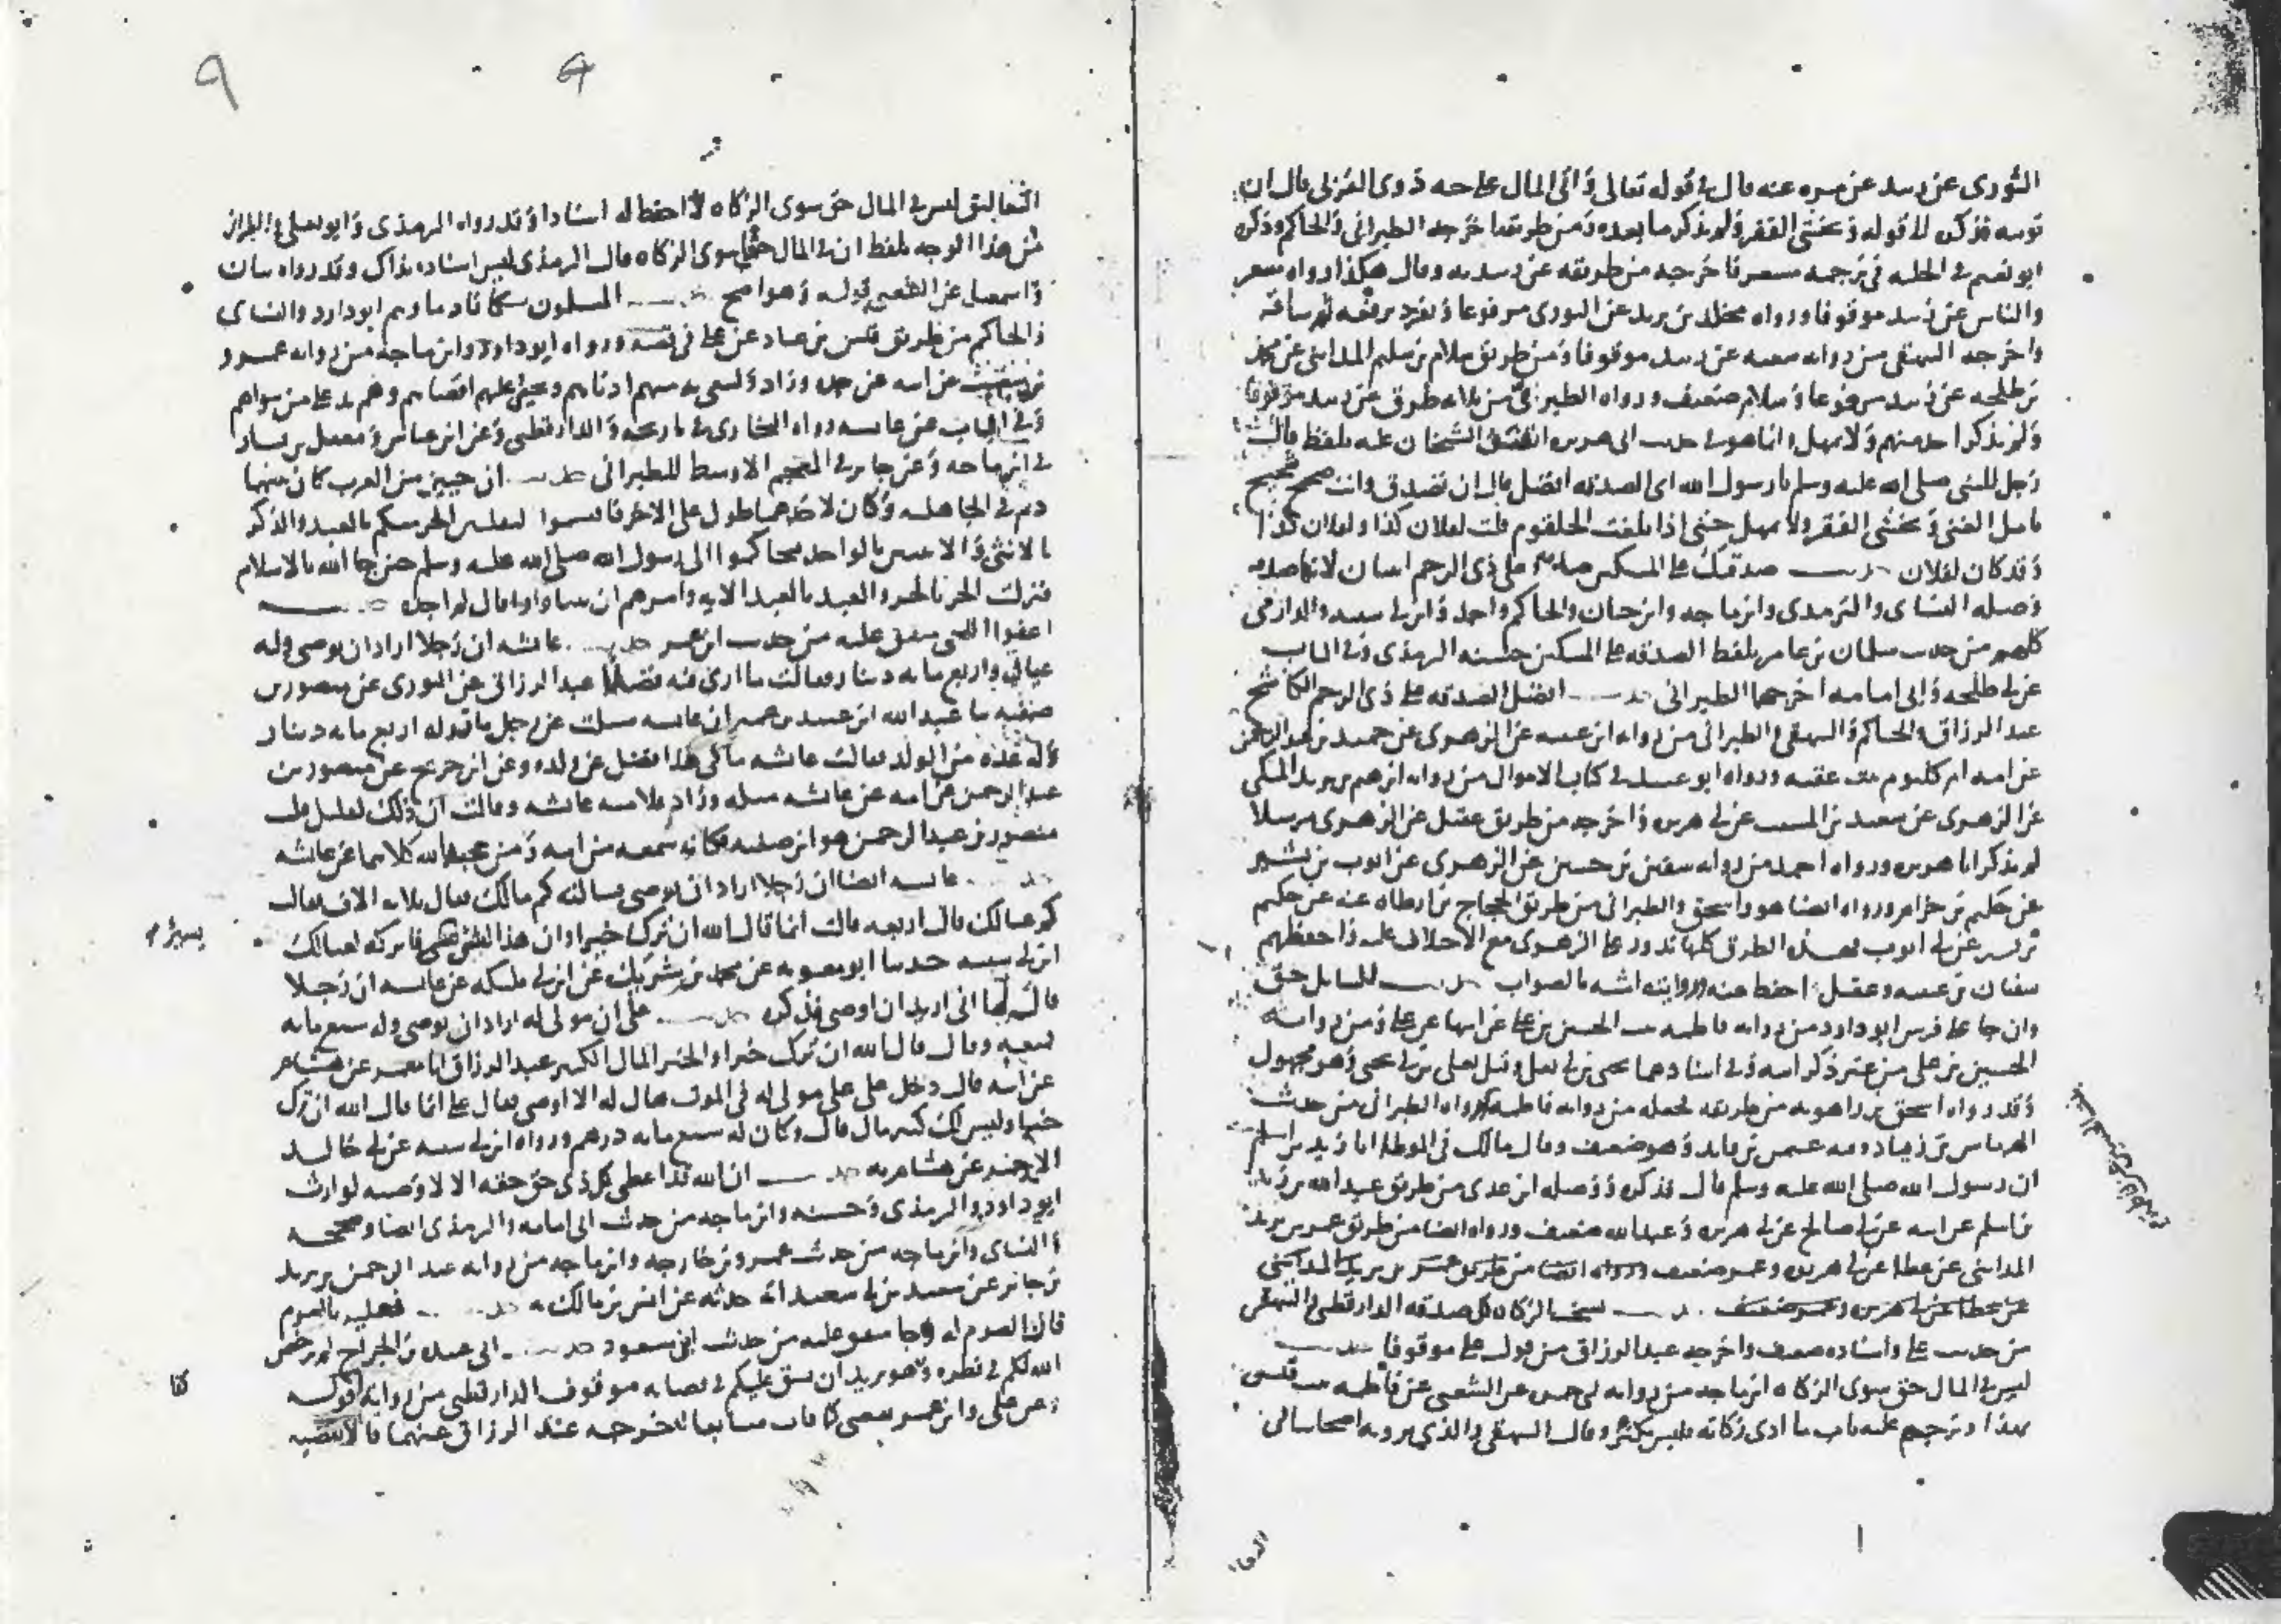 الثوري عن زبيد عن مره عنه قال في قوله تعالى وآتى المال على حبه ذوى القربى قال ان
قوله وتخشى الفقر ولم يذكر ما بعده ومن طريقه اخرجه الطبراني والحاكم وذكره
ابو نعيم في الحليه في ترجمه مسعر فاخرجه من طريقه عن زبيد به وقال هكذا رواه مسعر
والناس عن زبيد موقوفا ورواه مخلد بن يزيد عن الثورى مرفوعا وتفرد برفعه ثم ساقه
واخرجه البيهقى من روايه شعبه عن زبيد موقوفا ومن طريق سلام بن سليم المدايني عن محمد
بن طلحه عن زبيد مرفوعا وسلام ضعيف ورواه الطبراني من طرق عن زبيد موقوفا
ولم يذكر احد منهم ولا تمهل وانما هو في حديث ابى هريره اتفق الشيخان عليه بلفظ قال
رجل للنبى صلى الله عليه وسلم يا رسول الله اى الصدقه افضل قال ان تصدق وانت صحيح شحيح
تامل الغنى وتخشى الفقر ولا تمهل حتى اذا بلغت الحلقوم قلت لفلان كذا ولفلان كذا
وقد كان لفلان حديث صدقتك على المسكين صدقه وعلى ذى الرحم اثنتان لانها صدقه
وصله النساى والترمذى وابن ماجه وابن حبان والحاكم واحمد وابن ابي شيبه والدارمى
كلهم من حديث سلمان بن عامر بلفظ الصدقه على المسكين حسنه الترمذى وفي الباب
عن ابي طلحه وابى امامه اخرجهما الطبراني حديث افضل الصدقه على ذى الرحم الكاشح
عبد الرزاق والحاكم والبيهقى والطبراني من روايه ابن عيينه عن الزهرى عن حميد بن عبد الرحمن
عن امه ام كلثوم بنت عقبه ورواه ابو عبيد في كتاب الاموال من روايه ابرهيم بن يزيد المكى
عن الزهرى عن سعيد بن المسيب عن ابي هريره واخرجه من طريق عقيل عن الزهرى مرسلا
لم يذكر ابا هريره ورواه احمد من روايه سفين بن حسين عن الزهرى عن ايوب بن بشير
عن حكيم بن حزام ورواه ايضا هو واسحق والطبراني من طريق الحجاج بن ارطاه عنه عن حكيم
بن بشير عن ابي ايوب فهذه الطرق كلها تدور على الزهرى مع الاختلاف عليه واحفظهم
سفيان بن عيينه وعقيل احفظ منه وروايته اشبه بالصواب حديث للسايل حق
وان جا على فرس ابو داود من روايه فاطمه بنت الحسين بن على عن ابيها عن على ومن روايه
الحسين بن على من غير ذكر ابيه وفي اسنادهما يحيى بن ابي يعلى وقيل يعلى بن ابي يحيى وهو مجهول
وقد رواه اسحق بن راهويه من طريقه فجعله من روايه فاطمه ورواه الطبراني من حديث
الهرماس بن زياد وفيه عثمن بن فايد وهو ضعيف وقال مالك في الموطا انا زيد بن اسلم
ان رسول الله صلى الله عليه وسلم قال فذكره ووصله ابن عدى من طريق عبد الله بن زيد
بن اسلم عن ابيه عن ابي صالح عن ابي هريره وعبد الله ضعيف ورواه ايضا من طريق عمر بن يزيد
المدايني عن عطا عن ابي هريره وعمر ضعيف ورواه ايضا من طريق عمر بن يزيد المدايني
عن عطا عن ابي هريره وعمر ضعيف حديث نسخت الزكاه كل صدقه الدارقطنى والبيهقى
من حديث على واسناده ضعيف واخرجه عبد الرزاق من قول على موقوفا حديث
ليس في المال حق سوى الزكاه ابن ماجه من روايه ابي حمزه عن الشعبى عن فاطمه بنت قيس
بهذا وترجم عليه باب ما ادى زكاته فليس بكنز وقال البيهقى والذى يرويه اصحابنا في
التعاليق ليس في المال حق سوى الزكاه لا احفظ له اسنادا وقد رواه الترمذى وابو يعلى والطبراني
من هذا الوجه بلفظ ان في المال حقا سوى الزكاه وقال الترمذى ليس اسناده بذاك وقد رواه بيان
واسمعيل عن الشعبى قوله وهو اصح حديث المسلمون تتكافا دماوهم ابو داود والنساى
والحاكم من طريق قيس بن عباد عن على في قصه ورواه ابو داود وابن ماجه من روايه عمرو
بن شعيب عن ابيه عن جده وزاد ويسعى بذمتهم ادناهم ويجير عليهم اقصاهم وهم يد على من سواهم
وفي الباب عن عايشه رواه البخارى في تاريخه والدارقطنى وعن ابن عباس ومعقل بن يسار
في ابن ماجه وعن جابر في المعجم الاوسط للطبراني حديث ان حيين من العرب كان بينهما
دم في الجاهليه وكان لاحدهما طول على الاخر فاقسموا لنقتلن الحر منكم بالعبد والذكر
بالانثى والاثنين بالواحد فتحاكموا الى رسول الله صلى الله عليه وسلم حين جا الله بالاسلام
فنزلت الحر بالحر والعبد بالعبد الايه وامرهم ان يتباوؤا قال لم اجده حديث
اعفوا اللحى متفق عليه من حديث ابن عمر حديث عايشه ان رجلا اراد ان يوصى وله
عيال واربع مايه دينار فقالت ما ارى فيه فضلا عبد الرزاق عن الثورى عن منصور بن
صفيه نا عبد الله ابن عبيد بن عمير ان عايشه سيلت عن رجل مات وله اربع مايه دينار
وله عده من الولد فقالت عايشه ما في هذا فضل عن ولده وعن ابن جريج عن منصور بن
عبد الرحمن عن امه عن عايشه مثله وزاد فلامته عايشه وقالت ان ذلك لقليل
منصور بن عبد الرحمن هو ابن صفيه فكانه سمعه من امه ومن عبد الله كلاهما عن عايشه
حديث عايشه ايضا ان رجلا اراد ان يوصى فسالته كم مالك فقال ثلاثه الاف فقالت
كم عيالك قال اربعه قالت انما قال الله ان ترك خيرا وان هذا لشى يسير فاتركه لعيالك
ابن ابي شيبه حدثنا ابو معويه عن محمد بن شريك عن ابن ابي مليكه عن عايشه ان رجلا
قال لها انى اريد ان اوصى فذكره حديث على ان مولى له اراد ان يوصى وله سبع مايه
فمنعه وقال قال الله ان ترك خيرا والخير المال الكثير عبد الرزاق انا معمر عن هشام
عن ابيه قال دخل على على مولى له في الموت فقال له الا اوصى فقال على انما قال الله ان ترك
خيرا وليس لك كثير مال قال وكان له سبع مايه درهم ورواه ابن ابي شيبه عن ابي خالد
الاحمر عن هشام به حديث ان الله قد اعطى كل ذى حق حقه الا لا وصيه لوارث
ابو داود والترمذى وحسنه وابن ماجه من حديث ابى امامه والترمذى ايضا وصححه
والنساى وابن ماجه من حديث عمرو بن خارجه وابن ماجه من روايه عبد الرحمن بن يزيد
بن جابر عن سعيد بن ابي سعيد انه حدثه عن انس بن مالك به حديث فعليه بالصوم
فان الصوم له وجا متفق عليه من حديث ابن مسعود حديث ابى عبيده بن الجراح لم يرخص
الله لكم في فطره وهو يريد ان يشق عليكم في قضايه موقوف الدارقطنى من روايه
وعن على وابن عمر يقضى كما فات متتابعا اخرجه عبد الرزاق عنهما قال
يسير م